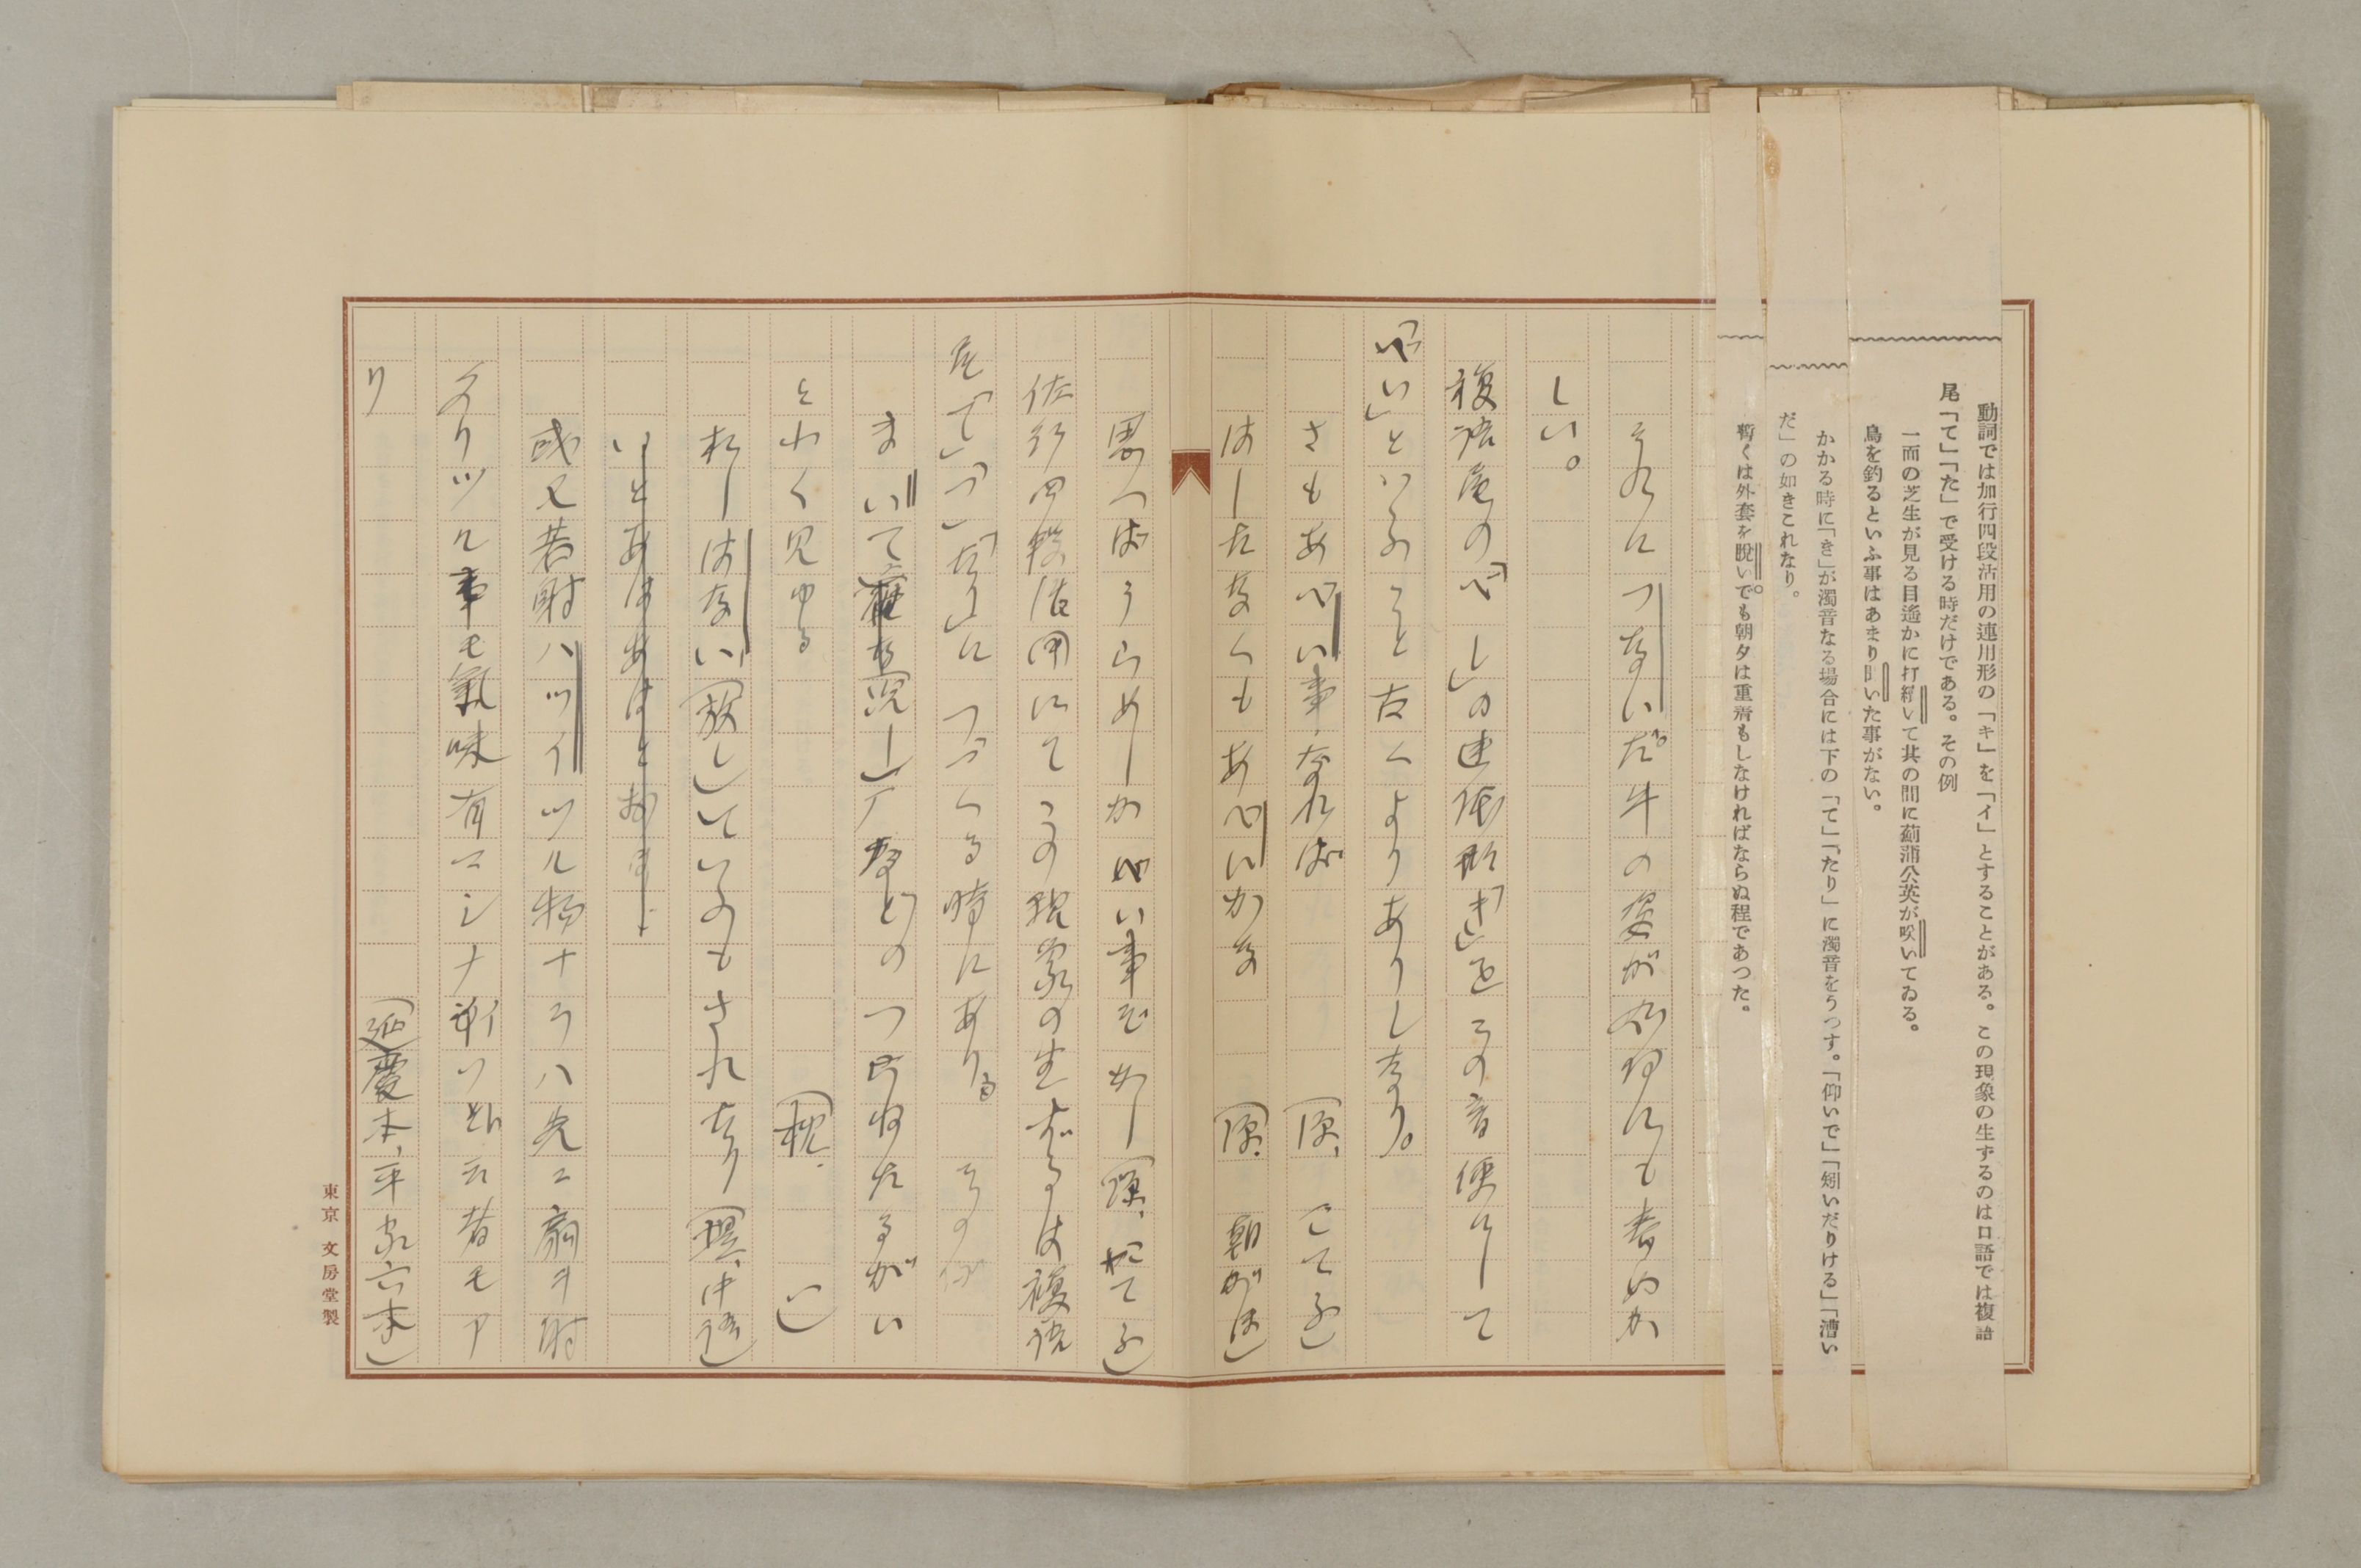 動詞では加行四段活用の連用形の「キ」を「イ」とすることがある。この現象の生ずるのは口語では複語
尾「て」「た」で受ける時だけである。その例
一面の芝生が見る目遙かに打續いて其の間に薊蒲公英が咲いてゐる。
鳥を釣るといふ事はあまり聞いた事がない。
かかる時に「き」が濁音なる場合には下の「て」「たり」に濁音をうつす。「仰いで」「矧いだりける」「漕い
だ」の如きこれなり。
暫くは外套を脫いでも朝夕は重着もしなければならぬ程であつた。
それにつないだ牛の姿が如何にも春めか
しい。
複語尾の「べし」の連体形「き」を この音便にして
「べい」といふこと古くよりありしなり。
さもあべい事なれば (源、 こてふ)
はしたなくもあべいかな (源、朝がほ)
思へばうらめしかべい事ぞかし (源、こてふ)
佐行四段活用にてこの現象の生ずるは複語
尾「て」「つ」「たり」につづく時にあり。 その例
まいて などのつらねたるがい
と小く見ゆる (枕、 一)
おしはない(放し)ていふもされたり
いとあはあはとおほし
或又若射ハツイツル物ナラハ先ニ扇ヲ射
タリツル事モ氣味有マシナ 云者モア
リ (延慶本、平家六本)
東京 文房堂製